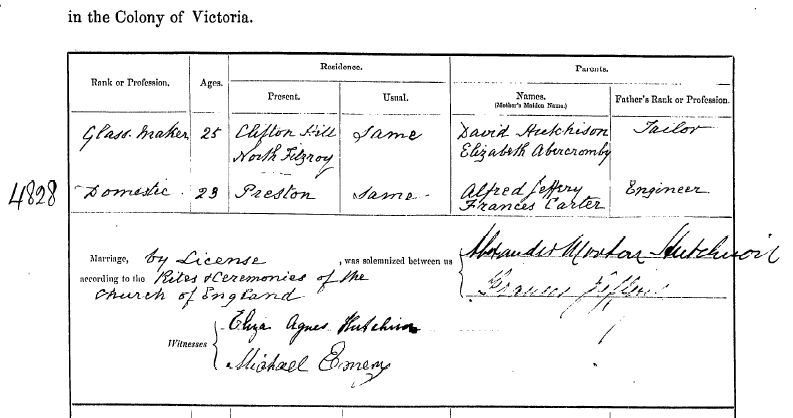 in the Colony of Victoria.
Residence. Parents.
Rank or Profession. Ages. Present. Usual. Names. Father's Rank or Profession.
(Mother's Maiden Name.)
Glass Maker 25 Clifton Hill Same David Hutchison Tailor
North Fitzroy Elizabeth Abercromby
4828 Domestic 23 Preston Same Alfred Jeffry Engineer
Frances Carter
Marriage, by License, was solemnized between us Alexander Morton Hutchison
according to the Rites & Ceremonies of the Frances
Church of England
Witnesses Eliza Agnes Hutchison
Michael Emery